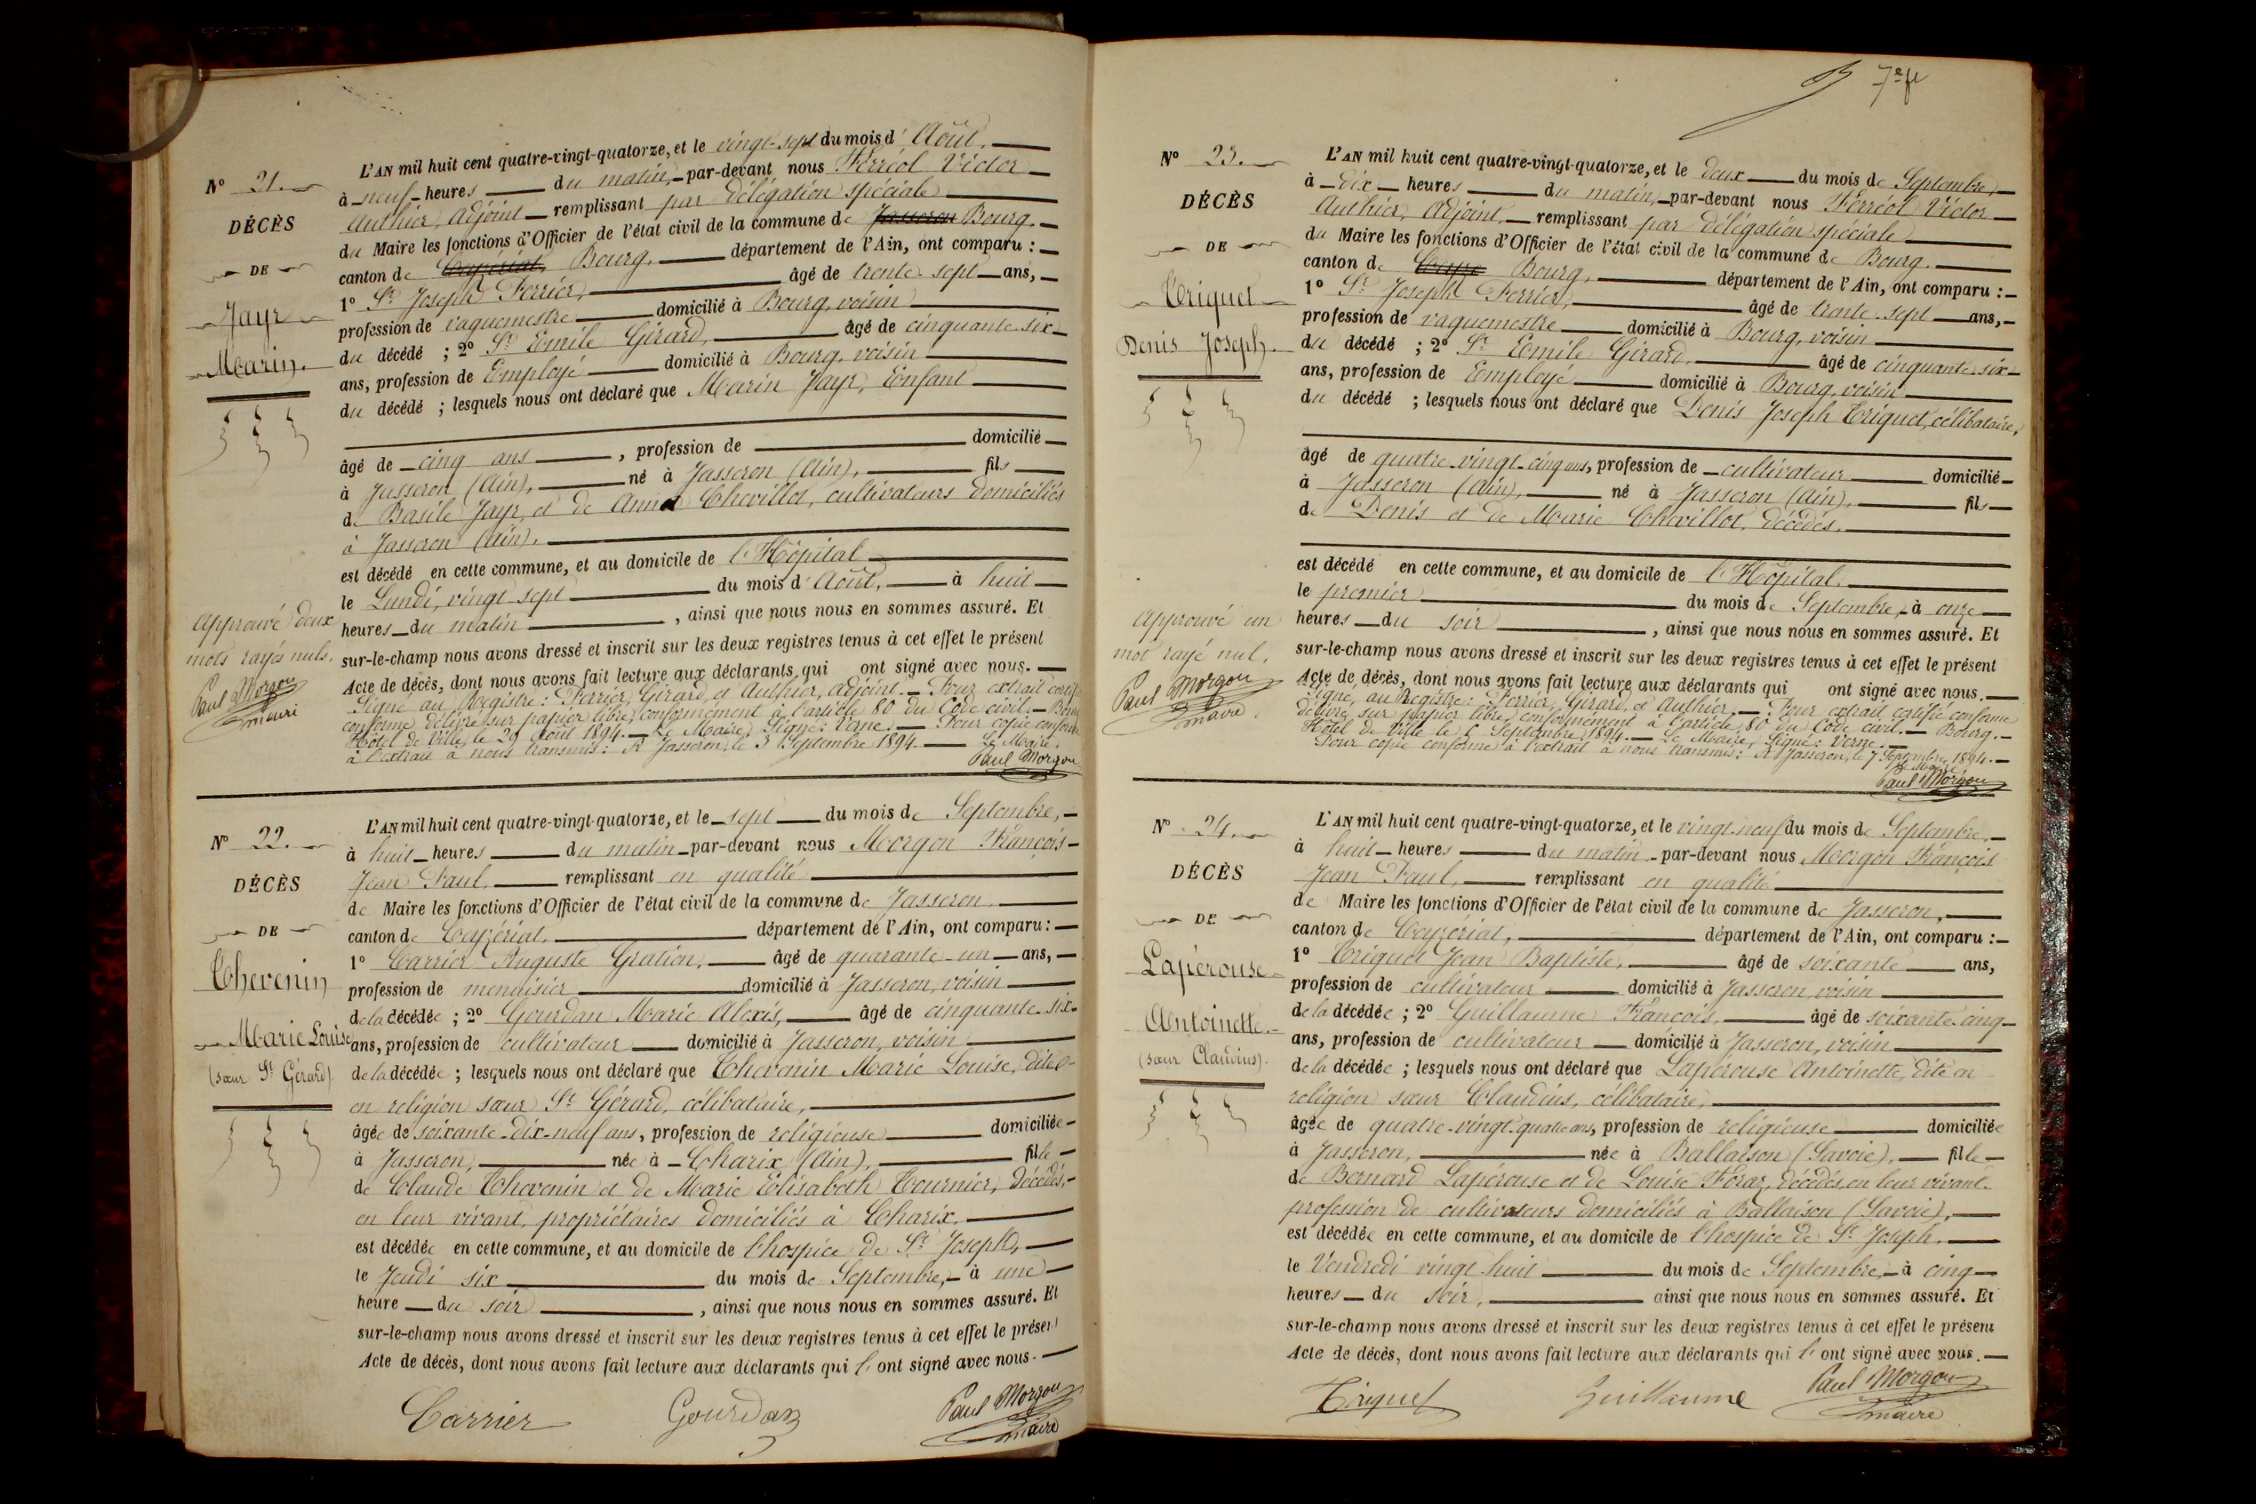 N° 21.
DÉCÈS
DE
Jayr
Marin.
L'AN mil huit cent quatre-vingt-quatorze, et le vingt-sept du mois d'Août.
à neuf heures du matin, par-devant nous Ferréol Victor
Authier, Adjoint remplissant par délégation spéciale
du Maire les fonctions d'Officier de l'état civil de la commune de Jasseron Bourg.
canton de Ceyzériat, Bourg, département de l'Ain, ont comparu :
1° St Joseph Ferrier, âgé de trente-sept ans,
profession de vaguemestre domicilié à Bourg, voisin
du décédé ; 2° St Emile Girard, âgé de cinquante-six
ans, profession de Employé domicilié à Bourg, voisin
du décédé ; lesquels nous ont déclaré que Marin Jayr, Enfant
âgé de cinq ans, profession de domicilié
à Jasseron (Ain), né à Jasseron (Ain), fils
de Basile Jayr, et de Anna Chevillot, cultivateurs domiciliés
à Jasseron (Ain).
est décédé en cette commune, et au domicile de l'Hôpital
le Lundi, vingt-sept du mois d'Août, à huit
heures du matin, ainsi que nous nous en sommes assuré. Et
sur-le-champ nous avons dressé et inscrit sur les deux registres tenus à cet effet le présent
Acte de décès, dont nous avons fait lecture aux déclarants, qui ont signé avec nous.
Signé au Registre : Ferrier, Girard, et Authier, adjoint. Pour extrait certifié
conforme délivré sur papier libre, conformément à l'article 80 du Code civil. Bourg
Hôtel de Ville, le 29 Août 1894. Le Maire, Signé : Verne. Pour copie conforme
à l'extrait à nous transmis : A Jasseron, le 3 Septembre 1894. Le Maire.
Paul Morgon
Approuvé deux
mots rayés nuls.
Paul Morgon
maire
N° 22.
DÉCÈS
DE
Thevenin
Marie Louise
(sœur St Gérard)
L'AN mil huit cent quatre-vingt-quatorze, et le sept du mois de Septembre,
à huit heures du matin par-devant nous Morgon François
Jean Paul, remplissant en qualité
de Maire les fonctions d'Officier de l'état civil de la commune de Jasseron,
canton de Ceyzériat, département de l'Ain, ont comparu :
1° Carrier Auguste Gration, âgé de quarante-un ans,
profession de menuisier domicilié à Jasseron, voisin
de la décédée ; 2° Gourdan Marie Alexis, âgé de cinquante-six
ans, profession de cultivateur domicilié à Jasseron, voisin
de la décédée ; lesquels nous ont déclaré que Thevenin Marie Louise, dite
en religion sœur St Gérard, célibataire,
âgée de soixante-dix-neuf ans, profession de religieuse domiciliée
à Jasseron, née à Charix (Ain), fille
de Claude Thevenin et de Marie Elisabeth Tournier, décédés,
en leur vivant, propriétaires domiciliés à Charix,
est décédée en cette commune, et au domicile de l'hospice de St Joseph,
le Jeudi six du mois de Septembre, à une
heure du soir, ainsi que nous nous en sommes assuré. Et
sur-le-champ nous avons dressé et inscrit sur les deux registres tenus à cet effet le présent
Acte de décès, dont nous avons fait lecture aux déclarants qui l'ont signé avec nous.
Carrier Gourdan Paul Morgon
maire
7e ft
N° 23.
DÉCÈS
DE
Triquet
Denis Joseph.
L'AN mil huit cent quatre-vingt-quatorze, et le deux du mois de Septembre,
à dix heures du matin, par-devant nous Ferréol Victor
Authier, Adjoint, remplissant par délégation spéciale
du Maire les fonctions d'Officier de l'état civil de la commune de Bourg.
canton de Bourg, département de l'Ain, ont comparu :
1° St Joseph Ferrier, âgé de trente-sept ans,
profession de vaguemestre domicilié à Bourg, voisin
du décédé ; 2° St Emile Girard, âgé de cinquante-six
ans, profession de Employé domicilié à Bourg, voisin
du décédé ; lesquels nous ont déclaré que Denis Joseph Triquet, célibataire,
âgé de quatre-vingt-cinq ans, profession de cultivateur domicilié
à Jasseron (Ain), né à Jasseron (Ain), fils
de Denis et de Marie Chevillot, décédés.
est décédé en cette commune, et au domicile de l'Hôpital.
le premier du mois de Septembre, à onze
heures du soir, ainsi que nous nous en sommes assuré. Et
sur-le-champ nous avons dressé et inscrit sur les deux registres tenus à cet effet le présent
Acte de décès, dont nous avons fait lecture aux déclarants qui ont signé avec nous.
Signé, au Registre : Ferrier, Girard, et Authier. Pour extrait certifié conforme
délivré sur papier libre, conformément à l'article 80 du Code civil. Bourg.
Hôtel de Ville le 6 Septembre 1894. Le Maire, Signé : Verne.
Pour copie conforme à l'extrait à nous transmis : A Jasseron, le 7 Septembre 1894.
Le Maire,
Paul Morgon
Approuvé un
mot rayé nul.
Paul Morgon
maire
N° 24.
DÉCÈS
DE
Lapérouse
Antoinette.
(sœur Claudius).
L'AN mil huit cent quatre-vingt-quatorze, et le vingt-neuf du mois de Septembre,
à huit heures du matin par-devant nous Morgon François
Jean Paul, remplissant en qualité
de Maire les fonctions d'Officier de l'état civil de la commune de Jasseron,
canton de Ceyzériat, département de l'Ain, ont comparu :
1° Triquet Jean Baptiste, âgé de soixante ans,
profession de cultivateur domicilié à Jasseron, voisin
de la décédée ; 2° Guillaume François, âgé de soixante-cinq
ans, profession de cultivateur domicilié à Jasseron, voisin
de la décédée ; lesquels nous ont déclaré que Lapérouse Antoinette, dite en
religion sœur Claudius, célibataire,
âgée de quatre-vingt-quatre ans, profession de religieuse domiciliée
à Jasseron, née à Ballaison (Savoie), fille
de Bernard Lapérouse et de Louise Foraz, décédés, en leur vivant
profession de cultivateurs domiciliés à Ballaison (Savoie),
est décédée en cette commune, et au domicile de l'hospice de St Joseph,
le Vendredi vingt-huit du mois de Septembre, à cinq
heures du soir, ainsi que nous nous en sommes assuré. Et
sur-le-champ nous avons dressé et inscrit sur les deux registres tenus à cet effet le présent
Acte de décès, dont nous avons fait lecture aux déclarants qui l'ont signé avec nous.
Triquet Guillaume Paul Morgon
maire